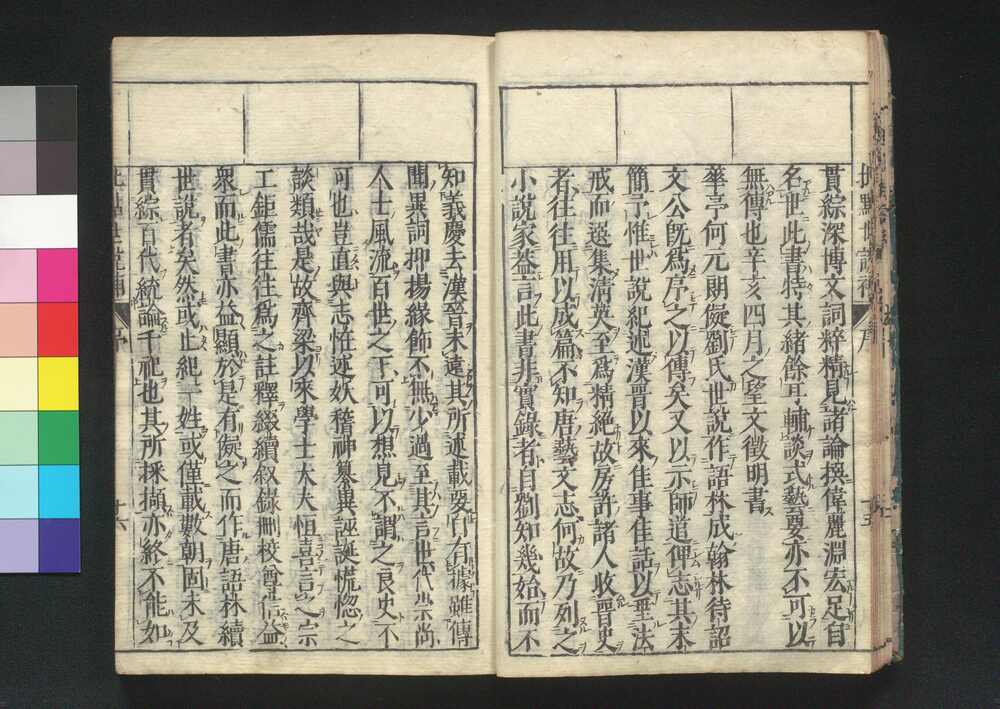 貫綜深博文詞粹精見諸論撰偉麗淵宏足自
名世此書特其緒餘耳輔談式藝要亦不可以
無傳也辛亥四月之望文徵明書
華亭何元朗儗劉氏世說作語林成翰林待詔
文公既爲序之以傳矣又以示師道俾志其末
簡予惟世說紀述漢晉以來佳事佳話以垂法
戒而選集清英至爲精絶故房許諸人收晉史
者往往用以成篇不知唐藝文志何故乃列之
小說家葢言此書非實錄者自劉知幾始而不
知義慶去漢晉未遠其所述載要自有據雖傳
聞異詞抑揚緣飾不無少過至其言世代崇尚
人士風流百世之下可以想見不謂之良史不
可也豈直與志恠述妖稽神纂異誣誕慌惚之
談類哉是故齊梁以來學士大夫恒喜言之宗
工鉅儒往往爲之註釋綴續叙錄刪校尊信益
衆而此書亦益顯於是有儗之而作唐語林續
世說者矣然或止紀一姓或僅載數朝固未及
貫綜百代統論千祀也其所採擷亦終不能如